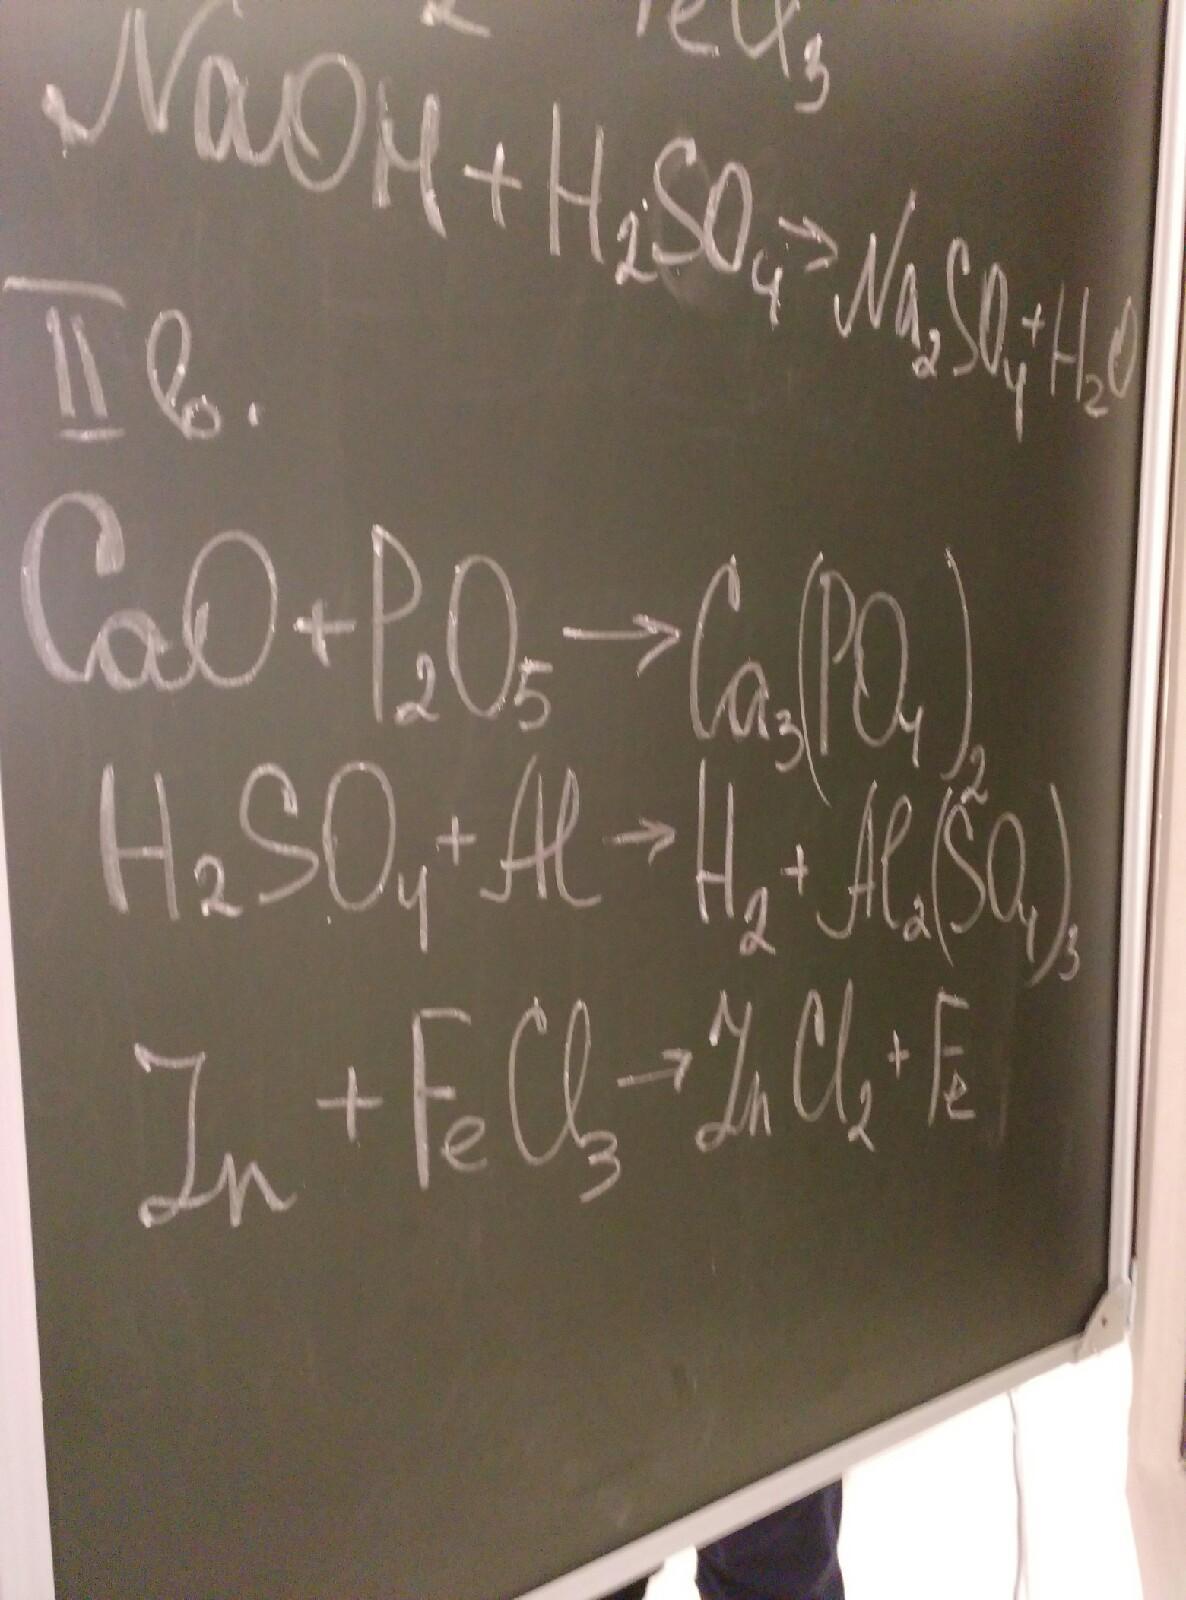 2 FeCl₃
NaOH + H₂SO₄ → Na₂SO₄ + H₂O
II в.
CaO + P₂O₅ → Ca₃(PO₄)₂
H₂SO₄ + Al → H₂ + Al₂(SO₄)₃
Zn + FeCl₃ → ZnCl₂ + Fe